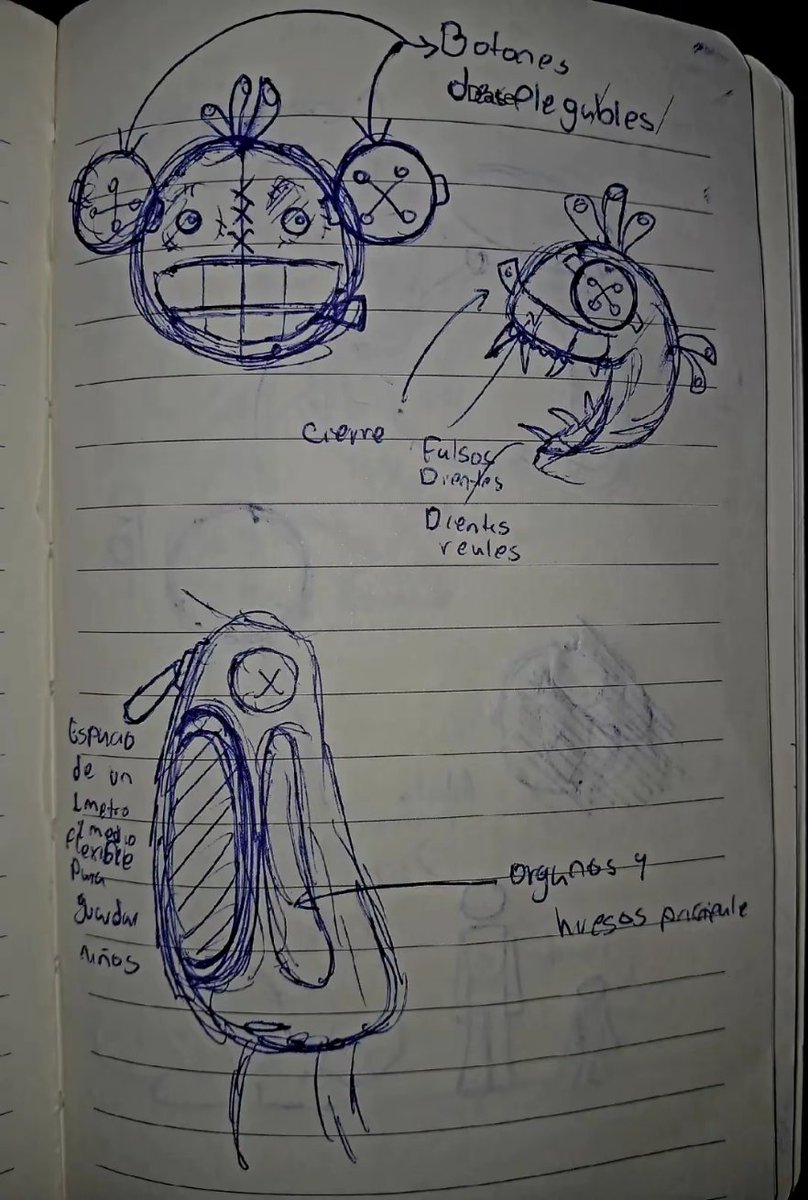 Botones
desplegables
cierre
Falsos
Dientes
Dientes
reales
Espacio
de un
1 metro
y medio
flexible
para
guardar
niños
organos y
huesos